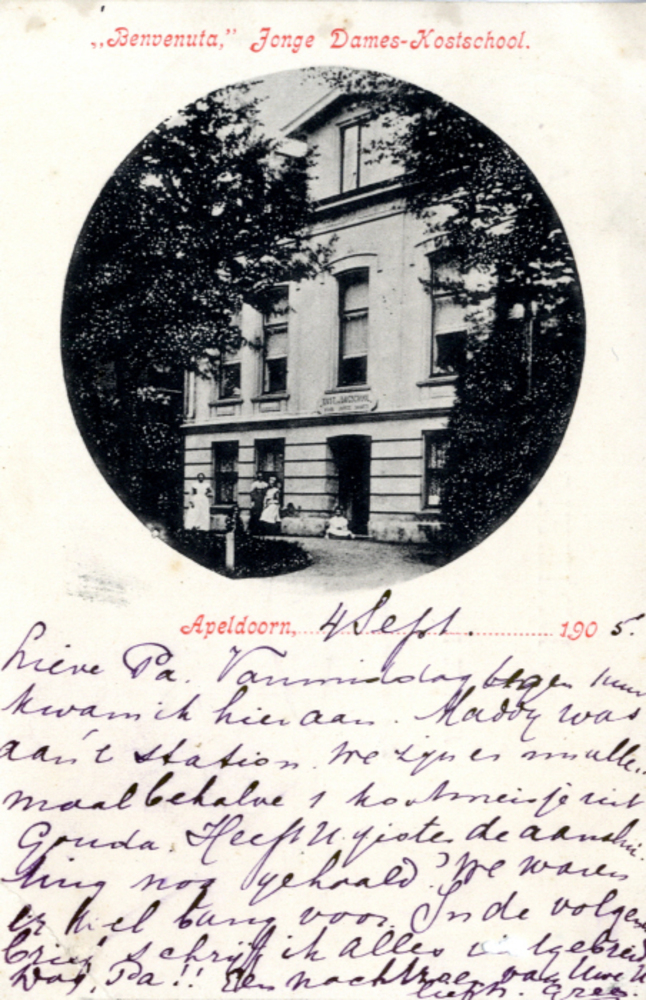 „Benvenuta,” Jonge Dames-Kostschool.
Apeldoorn, 4 Sept. 1905.
Lieve Pa. Vanmiddag tegen
kwam ik hier aan. Maddy was
aan 't station. We zijn er nu alle-
maal behalve 1 kostmeisje uit
Gouda. Heeft U gister de aanslui-
ting nog gehaald? We waren
er h wel bang voor. In de volgen
brief schrijf ik alles uitgebreid
Dag, Pa!! Een nachtzoen van Uwe U
liefh. Greta.